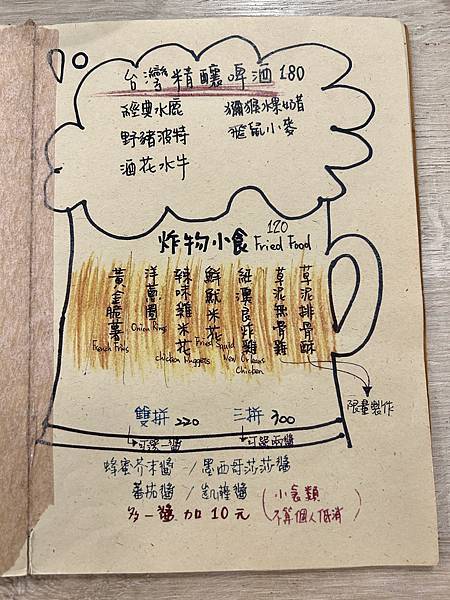 台灣精釀啤酒 180
經典水鹿 獼猴水果奶昔
野豬波特 飛鼠小麥
酒花水牛
120
炸物小食 Fried Food
黃金脆薯
French Fries
洋蔥圈
Onion Rings
辣味雞米花
Chicken Nuggets
鮮魷米花
Fried Squid
紐澳良炸雞
New Orleans
Chicken
草泥無骨雞
草泥排骨酥
限量製作
雙拼 220 三拼 300
可選一醬 可選兩醬
蜂蜜芥末醬 / 墨西哥莎莎醬
蕃茄醬 / 凱薩醬
多一醬 加 10 元
(小食類
不算個人低消)